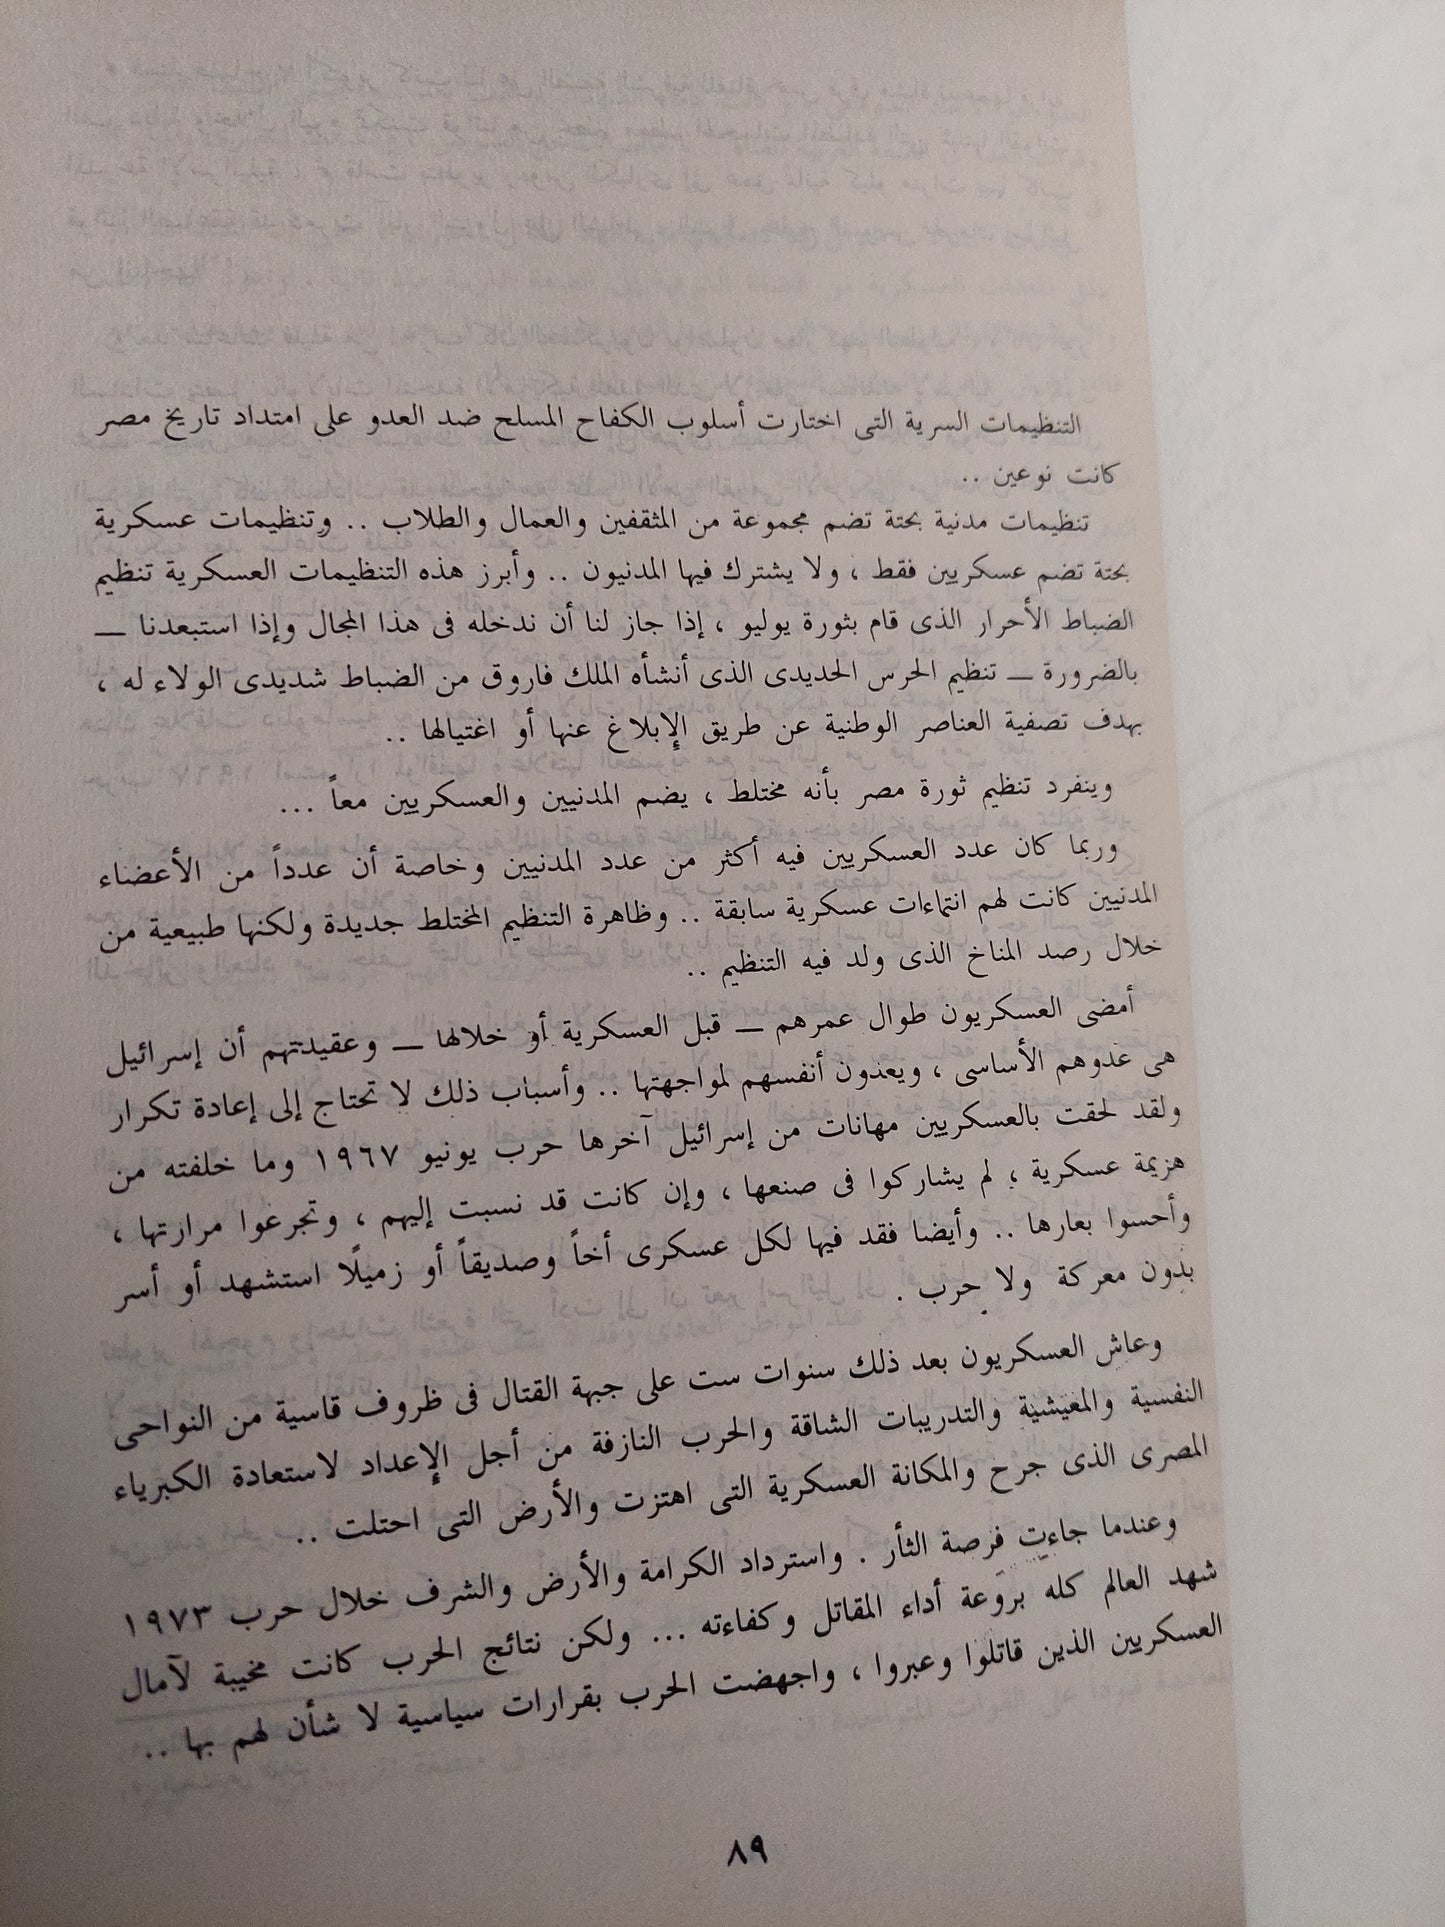 التنظيمات السرية التى اختارت أسلوب الكفاح المسلح ضد العدو على امتداد تاريخ مصر
كانت نوعين ..
تنظيمات مدنية بحتة تضم مجموعة من المثقفين والعمال والطلاب .. وتنظيمات عسكرية
بحتة تضم عسكريين فقط ، ولا يشترك فيها المدنيون .. وأبرز هذه التنظيمات العسكرية تنظيم
الضباط الأحرار الذى قام بثورة يوليو ، إذا جاز لنا أن ندخله فى هذا المجال وإذا استبعدنا —
بالضرورة — تنظيم الحرس الحديدى الذى أنشأه الملك فاروق من الضباط شديدى الولاء له ،
بهدف تصفية العناصر الوطنية عن طريق الإبلاغ عنها أو اغتيالها ..
وينفرد تنظيم ثورة مصر بأنه مختلط ، يضم المدنيين والعسكريين معاً ...
وربما كان عدد العسكريين فيه أكثر من عدد المدنيين وخاصة أن عدداً من الأعضاء
المدنيين كانت لهم انتماءات عسكرية سابقة .. وظاهرة التنظيم المختلط جديدة ولكنها طبيعية من
خلال رصد المناخ الذى ولد فيه التنظيم ..
أمضى العسكريون طوال عمرهم — قبل العسكرية أو خلالها — وعقيدتهم أن إسرائيل
هى عدوهم الأساسى ، ويعدون أنفسهم لمواجهتها .. وأسباب ذلك لا تحتاج إلى إعادة تكرار
ولقد لحقت بالعسكريين مهانات من إسرائيل آخرها حرب يونيو ١٩٦٧ وما خلفته من
هزيمة عسكرية ، لم يشاركوا فى صنعها ، وإن كانت قد نسبت إليهم ، وتجرعوا مرارتها ،
وأحسوا بعارها .. وأيضا فقد فيها لكل عسكرى أخاً وصديقاً أو زميلًا استشهد أو أسر
بدون معركة ولا حرب .
وعاش العسكريون بعد ذلك سنوات ست على جبهة القتال فى ظروف قاسية من النواحى
النفسية والمعيشية والتدريبات الشاقة والحرب النازفة من أجل الإعداد لاستعادة الكبرياء
المصرى الذى جرح والمكانة العسكرية التى اهتزت والأرض التى احتلت ..
وعندما جاءت فرصة الثأر . واسترداد الكرامة والأرض والشرف خلال حرب ١٩٧٣
شهد العالم كله بروعة أداء المقاتل وكفاءته ... ولكن نتائج الحرب كانت مخيبة لآمال
العسكريين الذين قاتلوا وعبروا ، واجهضت الحرب بقرارات سياسية لا شأن لهم بها ..
٨٩